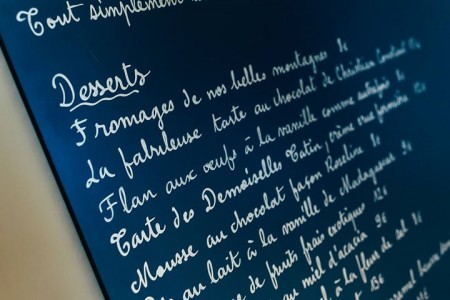 Tout simplement
Desserts
Fromages de nos belles montagnes 8€
La fabuleuse tarte au chocolat de Christian Constant
Flan aux œufs à la vanille comme autrefois 8€
Tarte des Demoiselles Tatin, crème crue fermière
Mousse au chocolat façon Roseline 8€
au lait à la vanille de Madagascar 9€
de fruits frais exotiques 12€
au miel d'acacia 9€
à la fleur de sel